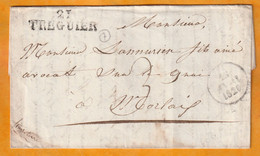 21
TREGUIER
Monsieur
Monsieur Lannurien fils ainé
avocat rue du quai
à Morlaix